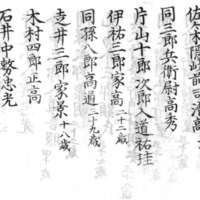 佐々木隠岐前司清高
同三郎兵衛尉高秀
片山十郎次郎入道祐珪
伊祐三郎家高 二十二歳
同孫八郎高通 三十九歳
支井三郎家景 十八歳
木村四郎正高
石井中務忠光